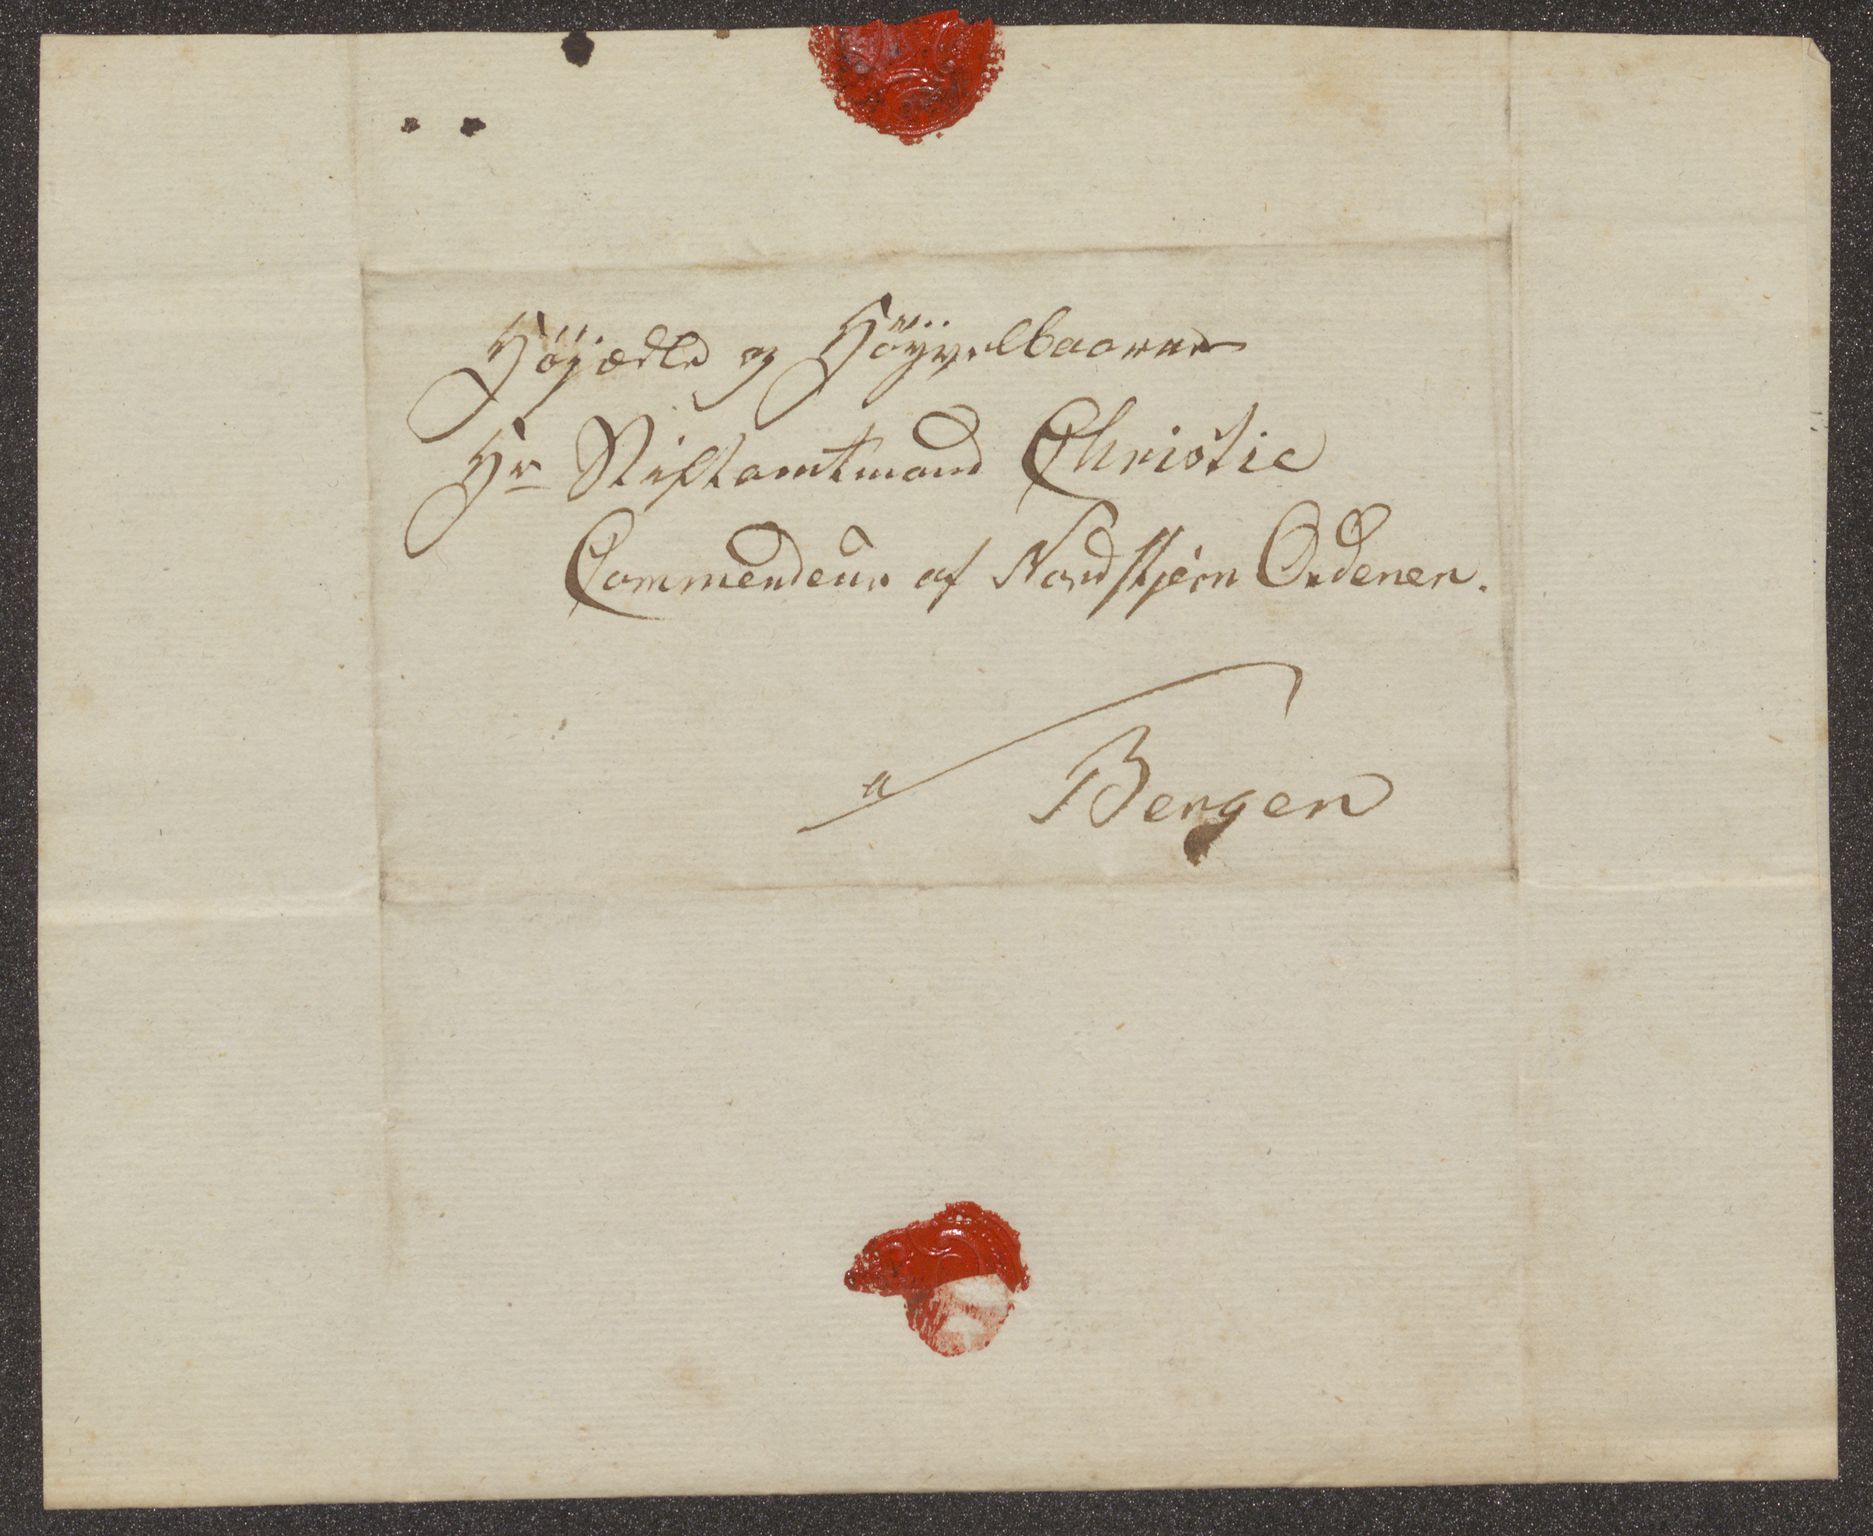 Højædle og Høyvelbaarne
Hr Stiftamtmand Christie
Commendeur af Nordstjern Ordenen.
a Bergen